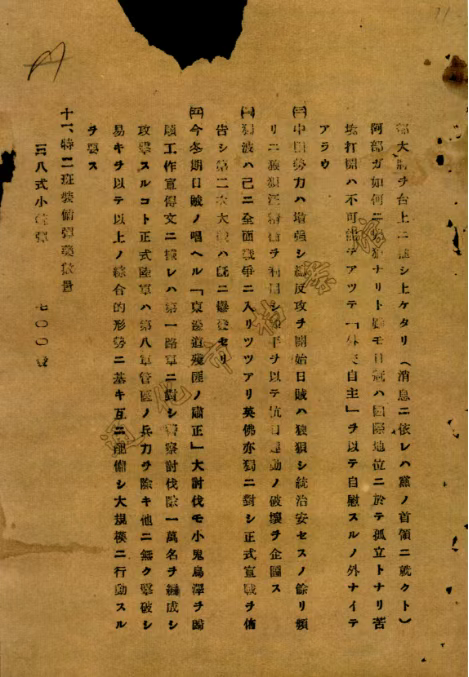 大將ヲ台上ニシ上ケタリ(消息ニ依レハ黨ノ首領ニ就クト)
阿部ガ如何ニナリト雖モ日寇ハ國際地位ニ於テ孤立トナリ苦
境打開ハ不可能デアツテ「外交自主」ヲ以テ自慰スルノ外ナイデ
アラウ
㈢中國勢力ハ增強シ總反攻ヲ開始日賊ハ狼狽シ統治安セスノ餘リ類
リニ汪精衛ヲ利用シ和平ヲ以テ抗日運動ノ破壞ヲ企圖ス
㈣獨波ハ已ニ全面戰爭ニ入リツツアリ英佛亦獨ニ對シ正式宣戰ヲ佈
告シ第二次大戰ハ既ニ爆發セリ
㈤今冬期日賊ノ唱ヘル「東邊道殘匪ノ肅正」大討伐モ小鬼烏澤ヲ歸
順工作宣得文ニ據レハ第一路軍ニ對シ警察討伐隊一萬名ヲ編成シ
攻擊スルコト正式陸軍ハ第八軍管區ノ兵力ヲ除キ他ニ無ク擊破シ
易キヲ以テ以上ノ綜合的形勢ニ基キ互ニ配備シ大規模ニ行動スル
ヲ要ス
十一、特二班裝備彈藥數量
三八式小銃彈 七〇〇發
通化市档案